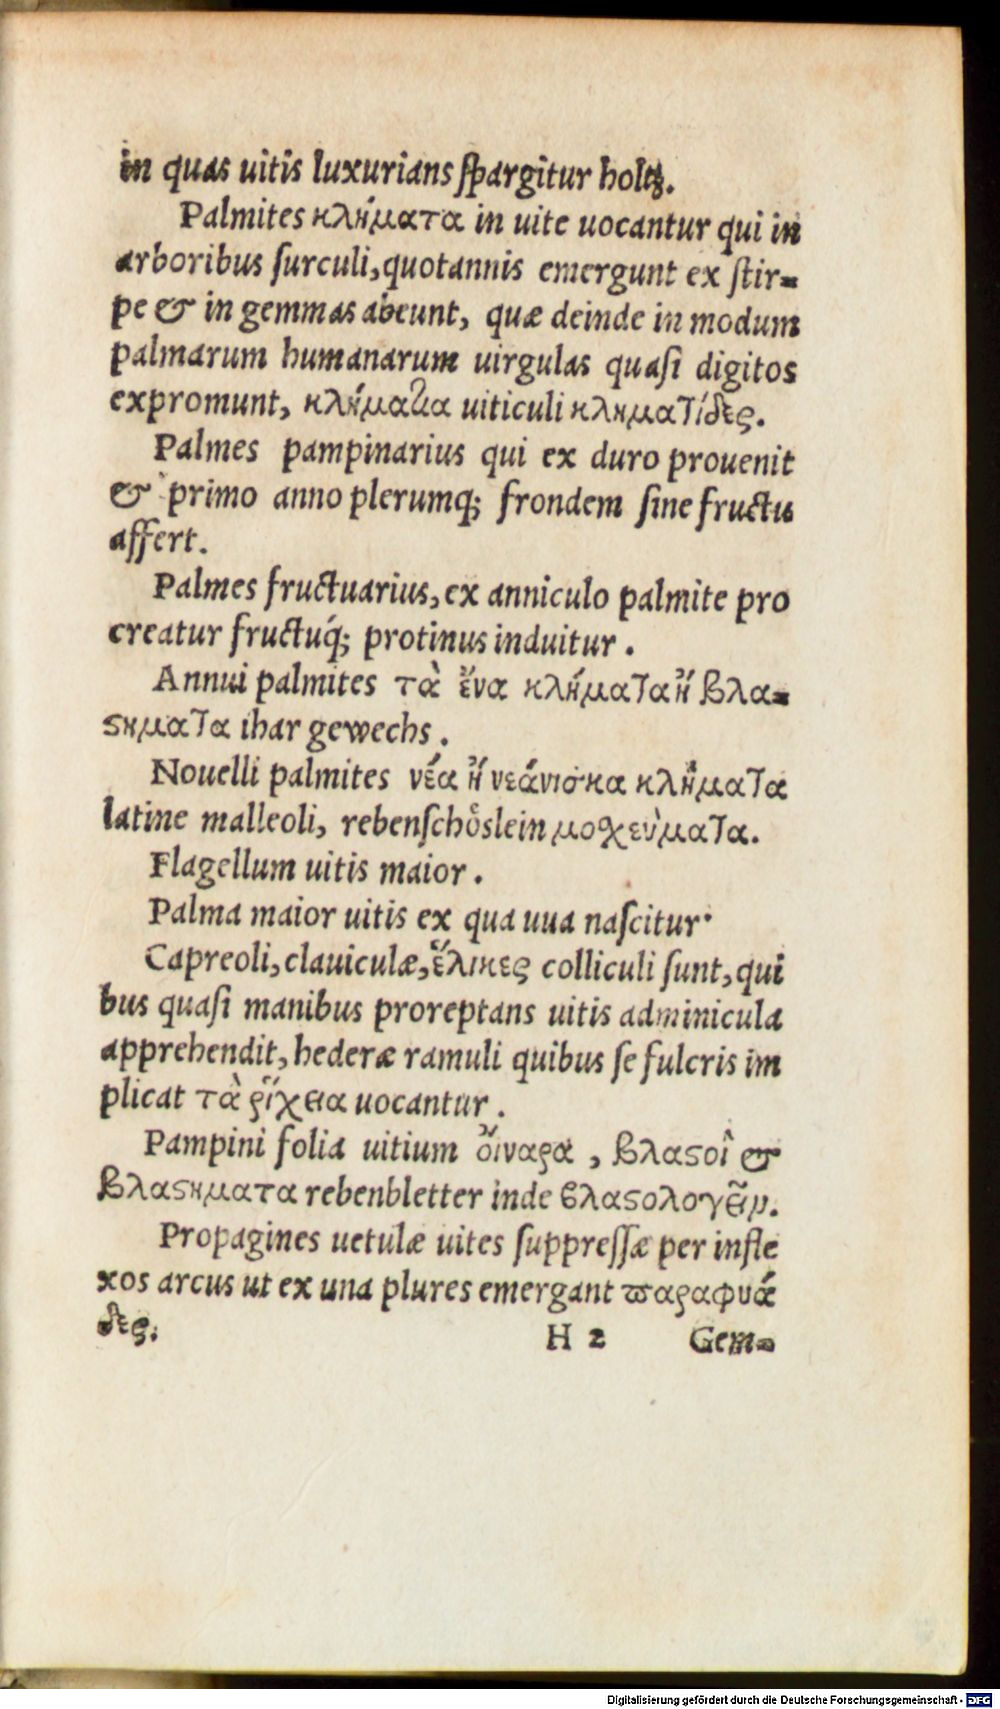 in quas uitis luxurians ſpargitur holtz.
Palmites κλήματα in uite uocantur qui in
arboribus ſurculi, quotannis emergunt ex ſtir-
pe & in gemmas abeunt, quæ deinde in modum
palmarum humanarum uirgulas quaſi digitos
expromunt, κλήματα uiticuli κληματίδες.
Palmes pampinarius qui ex duro prouenit
& primo anno plerumq; frondem ſine fructu
affert.
Palmes fructuarius, ex anniculo palmite pro
creatur fructuq́; protinus induitur.
Annui palmites τὰ ἔνα κλήματα ἤ βλα-
ϛήματα ihar gewechs.
Nouelli palmites νέα ἤ νεάνισκα κλήματα
latine malleoli, rebenſchoͤslein μοχεύματα.
Flagellum uitis maior.
Palma maior uitis ex qua uua naſcitur.
Capreoli, clauiculæ, ἕλικες colliculi ſunt, qui
bus quaſi manibus proreptans uitis adminicula
apprehendit, hederæ ramuli quibus ſe fulcris im
plicat τὰ ῥίχεια uocantur.
Pampini folia uitium οἴναρα, βλαϛοὶ &
βλαϛήματα rebenbletter inde βλαϛολογεῖν.
Propagines uetulæ uites ſuppreſſæ per infle
xos arcus ut ex una plures emergant παραφυά
δες.
H 2 Gem-
Digitalisierung gefördert durch die Deutsche Forschungsgemeinschaft - DFG